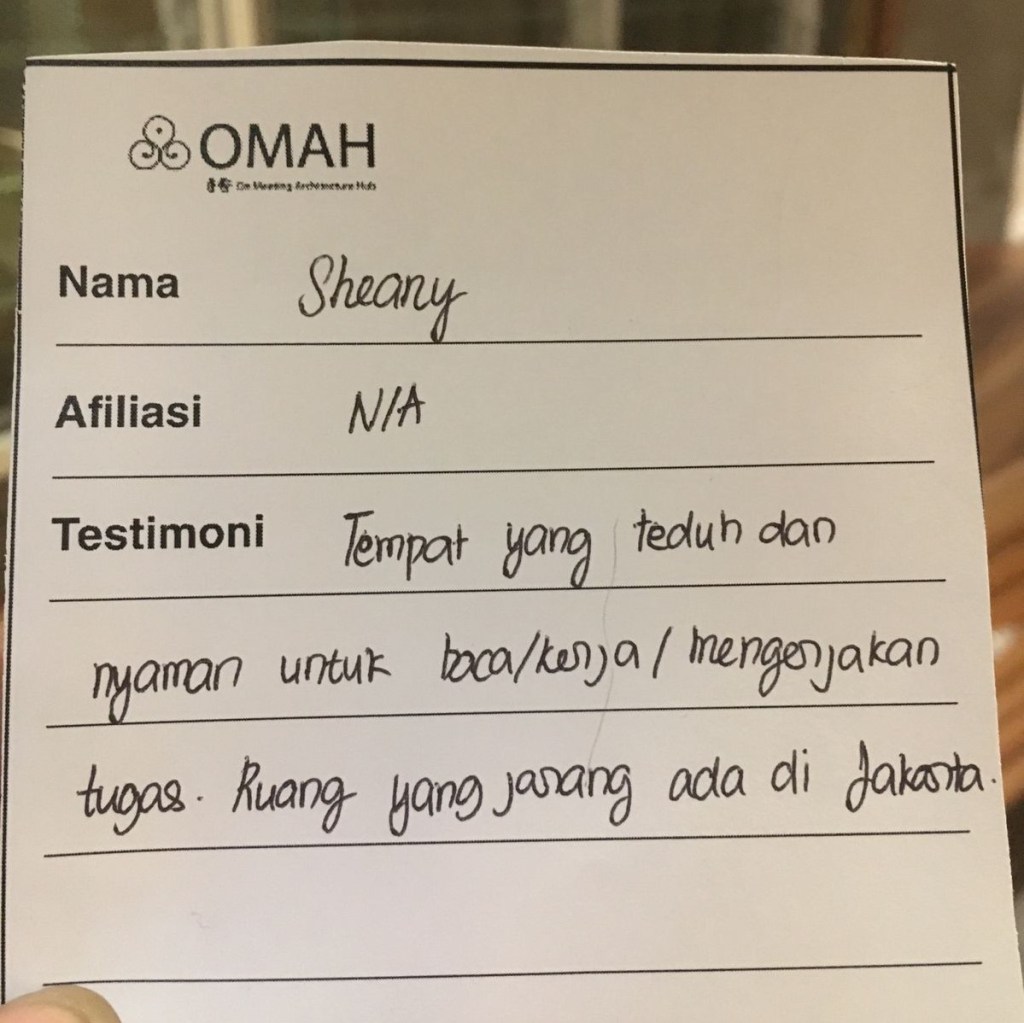 OMAH
On Meeting Architecture Hub
Nama Sheany
Afiliasi N/A
Testimoni Tempat yang teduh dan
nyaman untuk baca/kerja/mengerjakan
tugas. Ruang yang jarang ada di Jakarta.